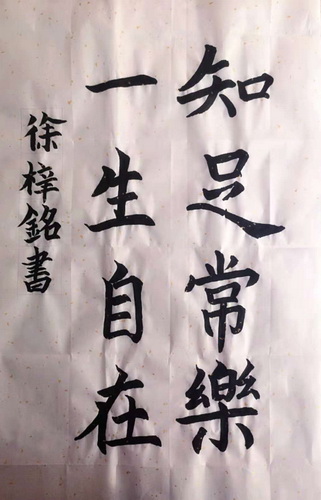 知足常樂
一生自在
徐梓銘書